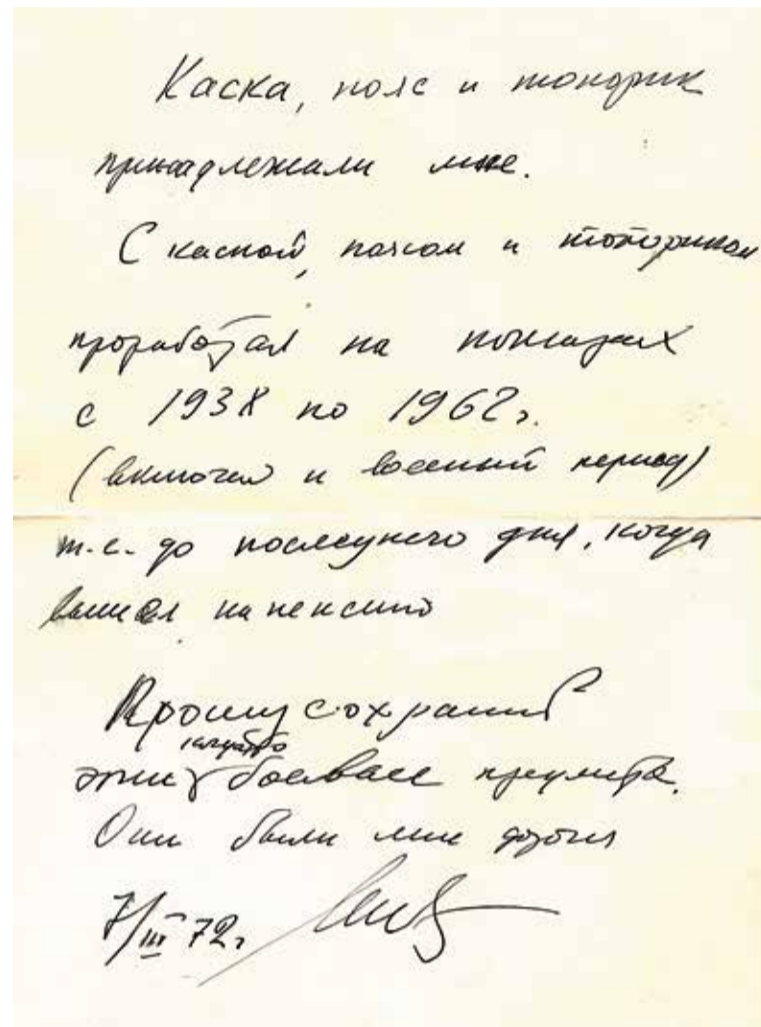 Каска, пояс и топорик
принадлежали мне.
С каской, поясом и топориком
проработал на пожарах
с 1938 по 1962 г.
(включая и военный период)
т.е. до последнего дня, когда
вышел на пенсию
Прошу сохранить
эти боевые предметы.
Они были мне дороги
7/III 72 г.